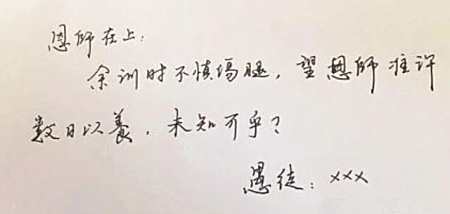 恩师在上：
余训时不慎塲腿，望恩师准许
数日以養，未知可乎？
愚徒：×××